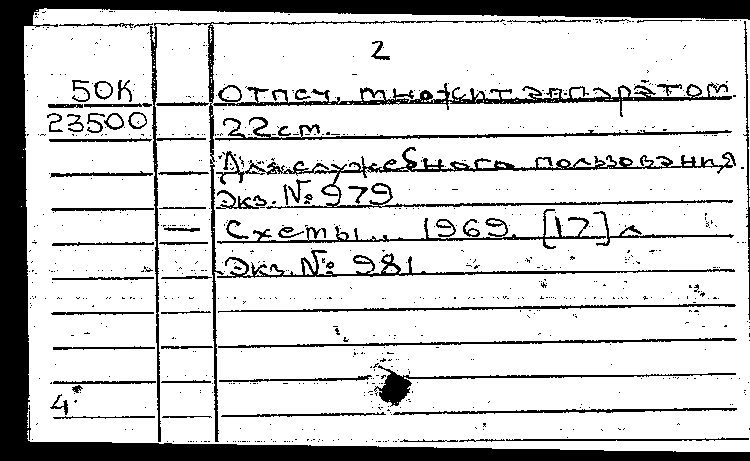 2
50К Отпеч. множит. аппаратом
23500 22 см.
Для служебного пользования
Экз. № 979
— Схемы.. 1969. [17] л
Экз. № 981.
4